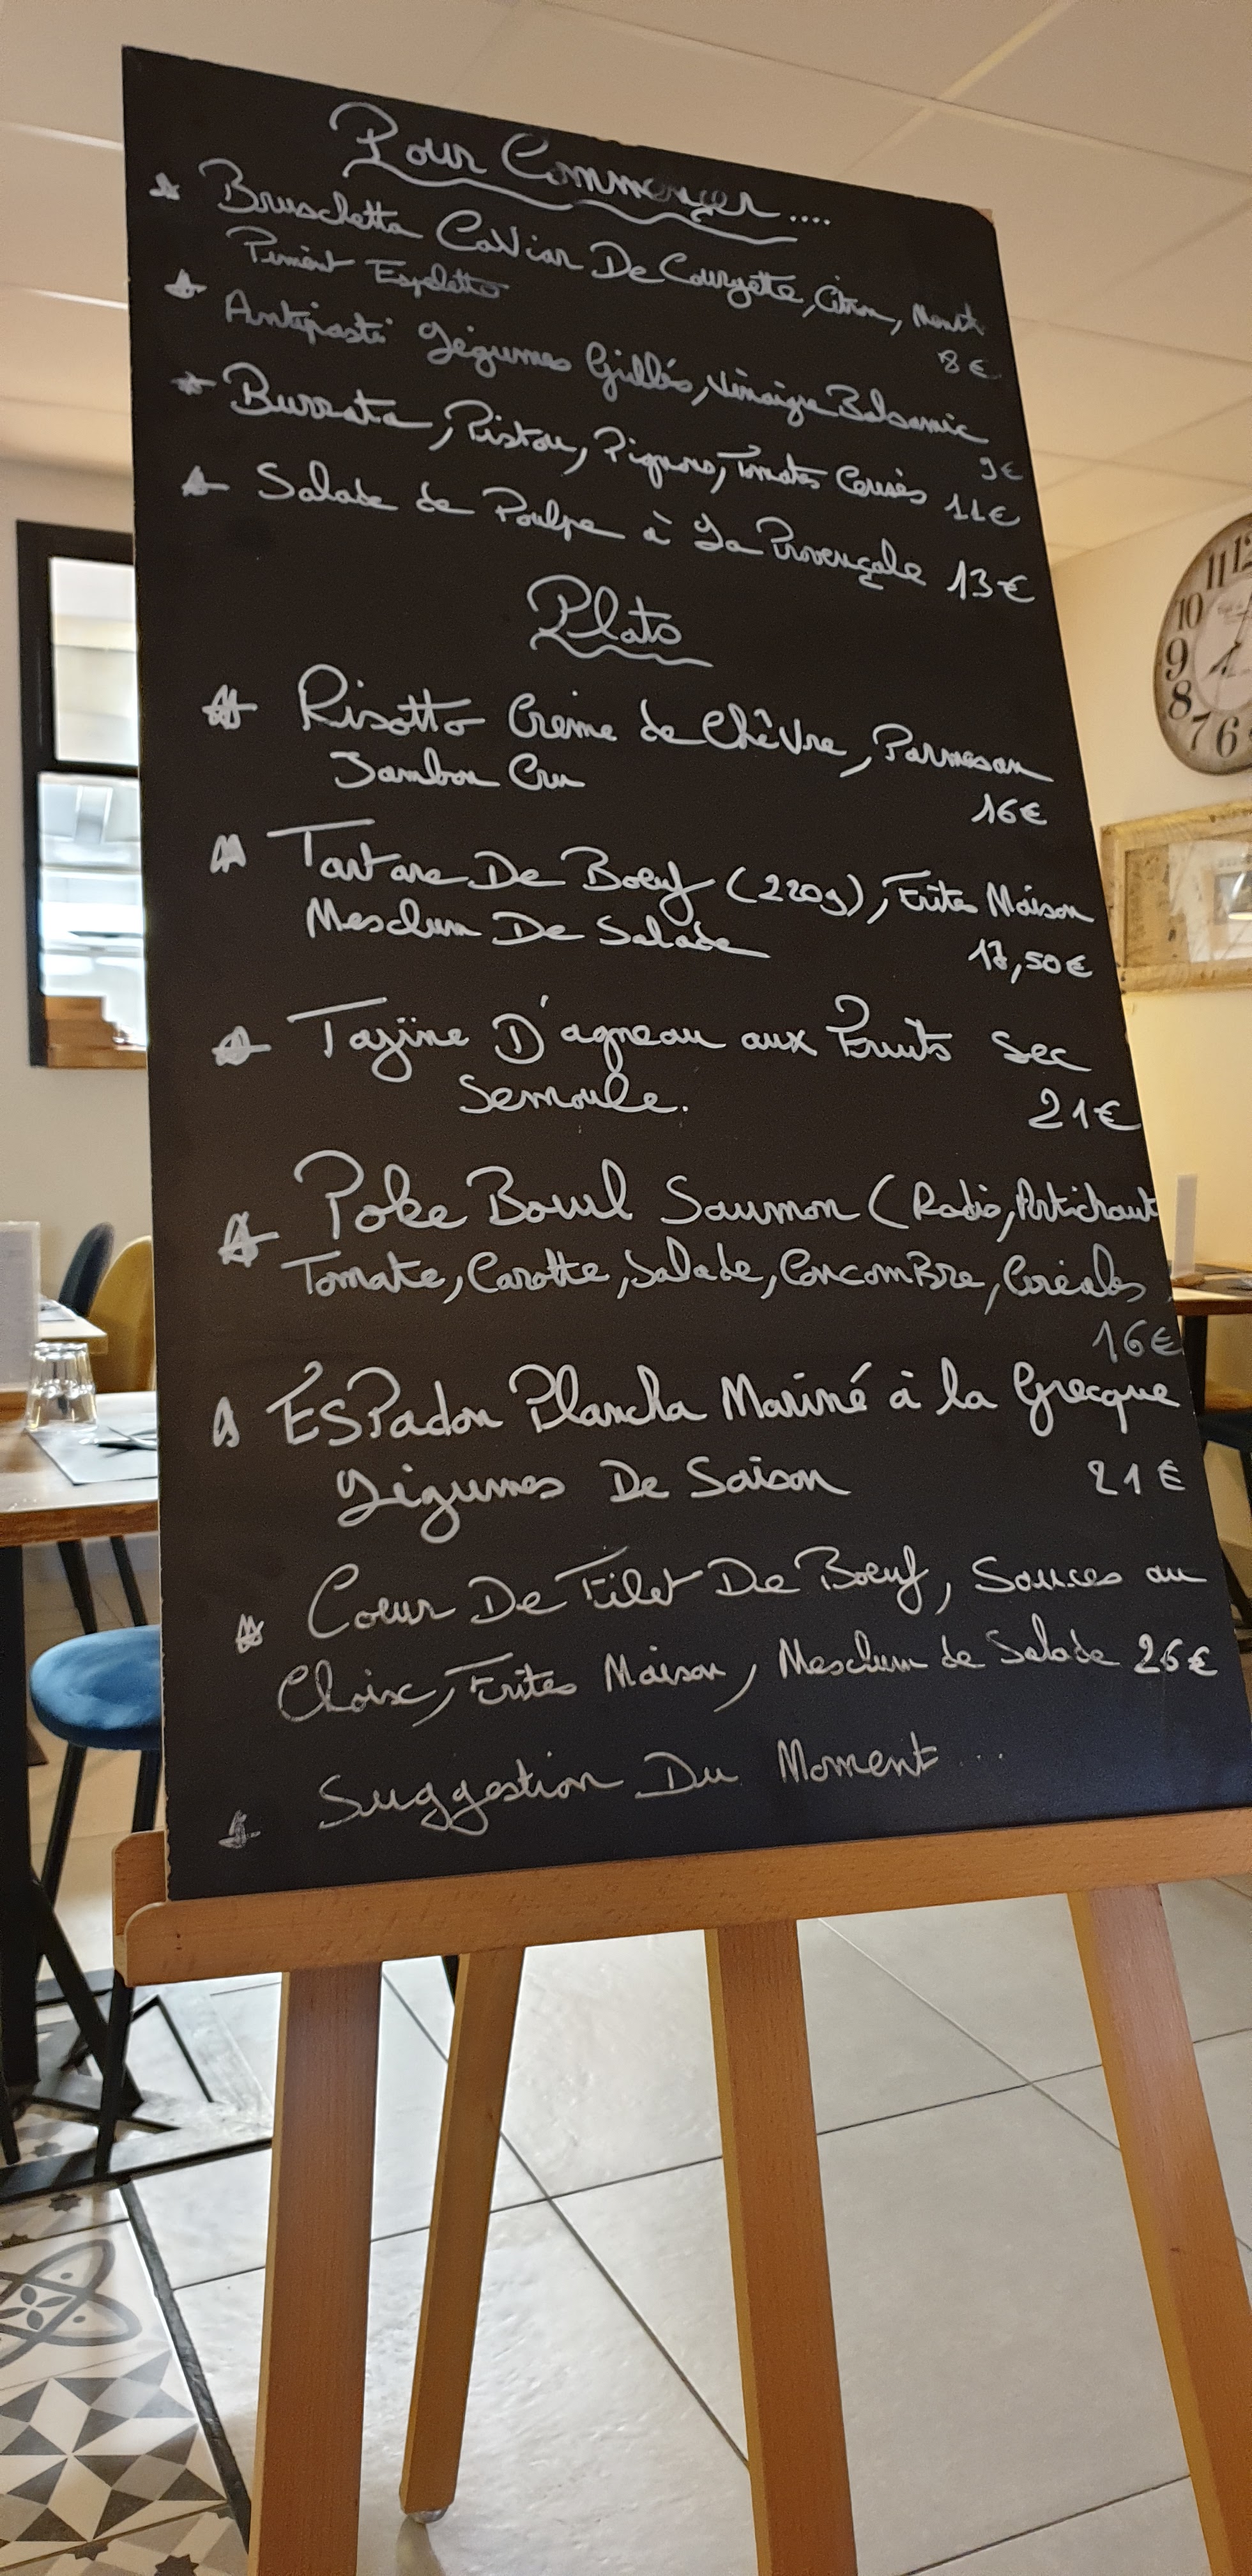 Pour Commencer....
Bruschetta Caviar De Courgette, Citron, Menthe
Piment Espelette
8€
Antipasti Légumes Grillés, Vinaigre Balsamic
9€
Burrata, Pistou, Pignons, Tomates Cerises 11€
Salade de Poulpe à La Provençale 13€
Plats
Risotto Crème de Chêvre, Parmesan
Jambon Cru
16€
Tartare De Boeuf (220g), Frites Maison
Mesclum De Salade
17,50€
Tajine D'agneau aux Fruits Sec
Semoule.
21€
Poke Bowl Saumon (Radis, Artichaut
Tomate, Carotte, Salade, Concombre, Céréales
16€
ÉSPadon Plancha Mariné à la Grecque
Légumes De Saison 21€
Coeur De Filet De Boeuf, Sauces au
Choix, Frites Maison, Mesclum de Salade 26€
Suggestion Du Moment...
10 11 12
9
8
7 6